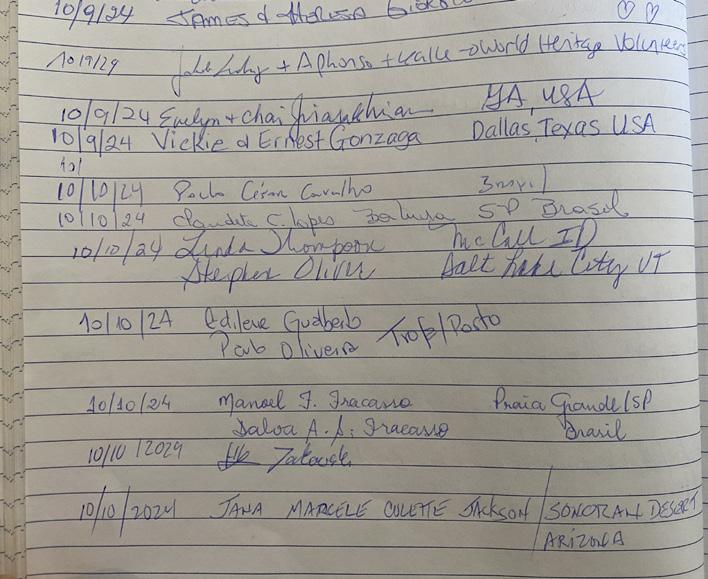 10/9/24 JAMES & THERESA
10/9/24 + Aphonso + Kalle → World Heritage Volunteers
10/9/24 Evelyn + Chai GA, USA
10/9/24 Vickie & Ernest Gonzaga Dallas, Texas USA
10/
10/10/24 Paulo César Carvalho Brasil
10/10/24 Claudete C. Lopes SP Brasil
10/10/24 Linda Thompson McCall ID
Stephen Oliver Salt Lake City UT
10/10/24 Edilene Gualberto
Paulo Oliveira Trofa/Porto
10/10/24 Manoel F. Fracasso Praia Grande/SP
Dalva A. S. Fracasso Brasil
10/10/2024
10/10/2024 JANA MARCELE COLETTE JACKSON SONORAN DESERT
ARIZONA